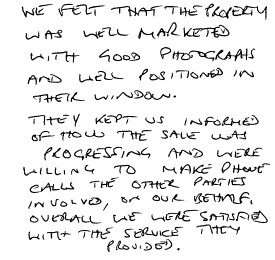 WE FELT THAT THE PROPERTY
WAS WELL MARKETED
WITH GOOD PHOTOGRAPHS
AND WELL POSITIONED IN
THEIR WINDOW.
THEY KEPT US INFORMED
OF HOW THE SALE WAS
PROGRESSING AND WERE
WILLING TO MAKE PHONE
CALLS THE OTHER PARTIES
INVOLVED, ON OUR BEHALF.
OVERALL WE WERE SATISFIED
WITH THE SERVICE THEY
PROVIDED.